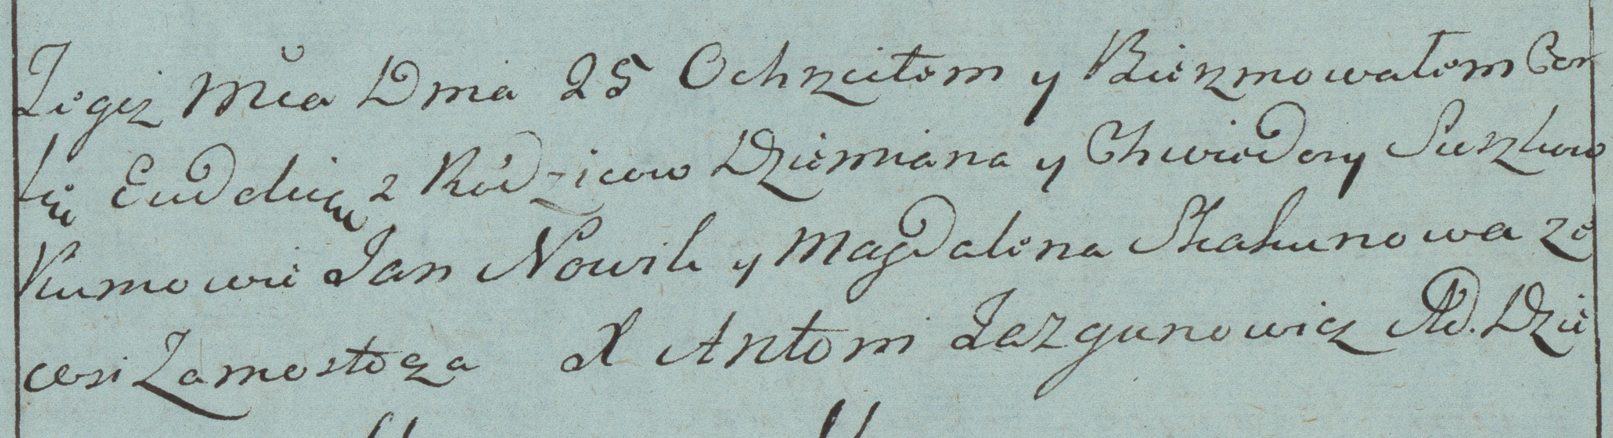 Tegoż Mca Dnia 25 Ochrzciłem y Bierzmowałem Cor
kę Eudokię z Rodziców Dziemiana y Chwiedory Suszkow
Kumowie Jan Nowik y Magdalena Skakunowa ze
wsi Zamostocza X Antoni Jazgunowicz Ad. Dzie